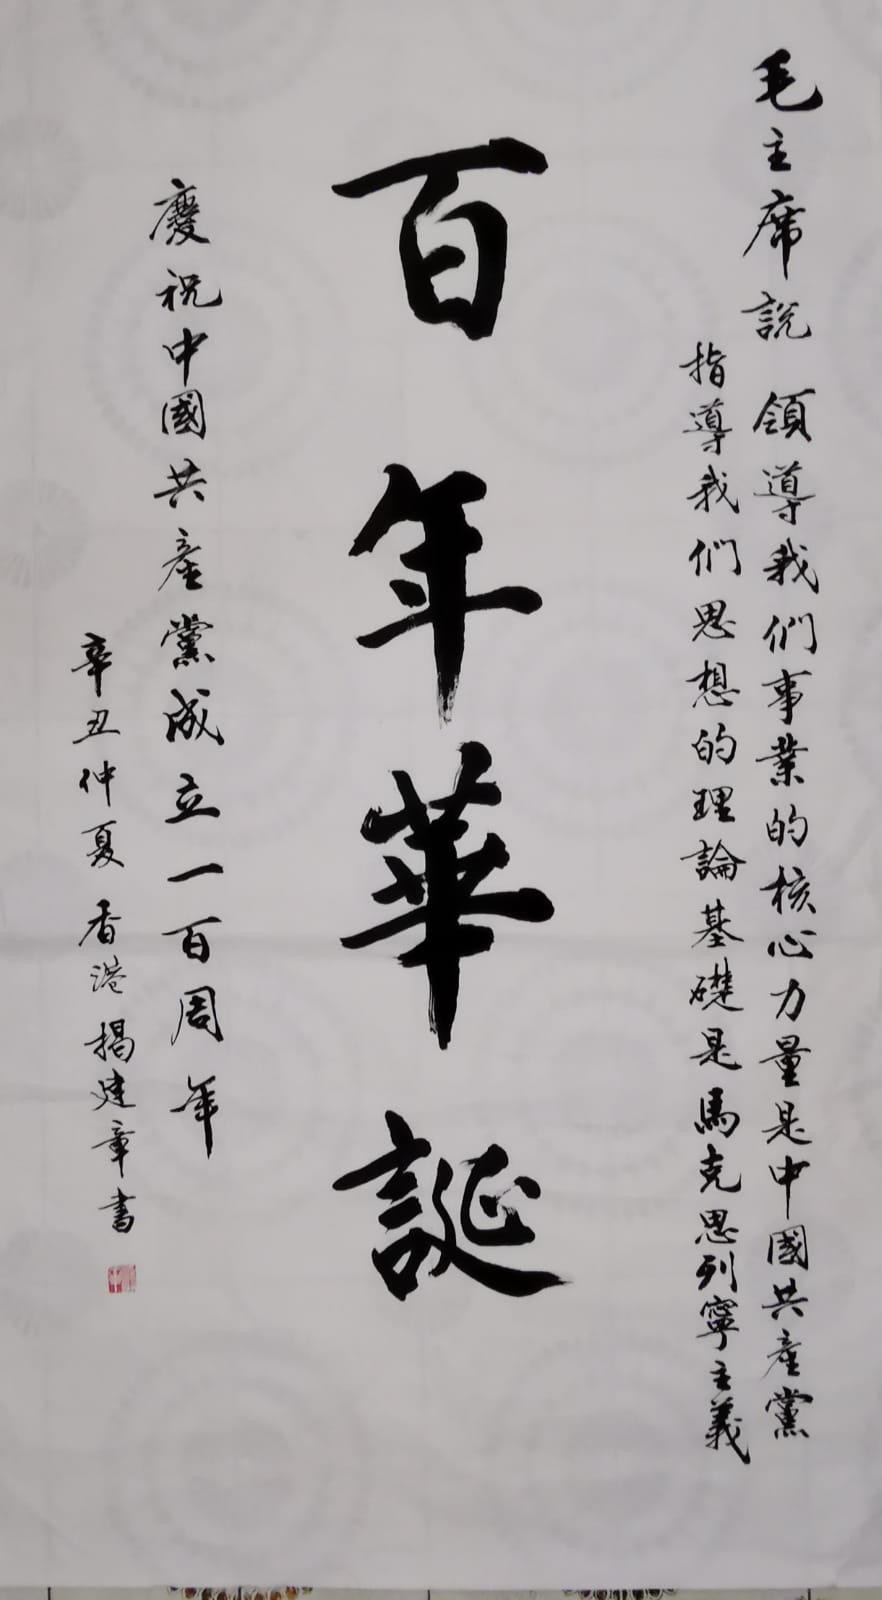 毛主席說 領導我們事業的核心力量是中國共產黨
指導我們思想的理論基礎是馬克思列寧主義
百年華誕
慶祝中國共產黨成立一百周年
辛丑仲夏 香港揭建章書